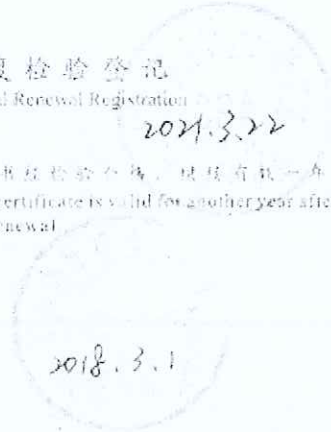 检验登记
l Renewal Registration
2021.3.22
本证书经检验合格，继续有效一年
ertificate is valid for another year afte
newal
2018.3.1